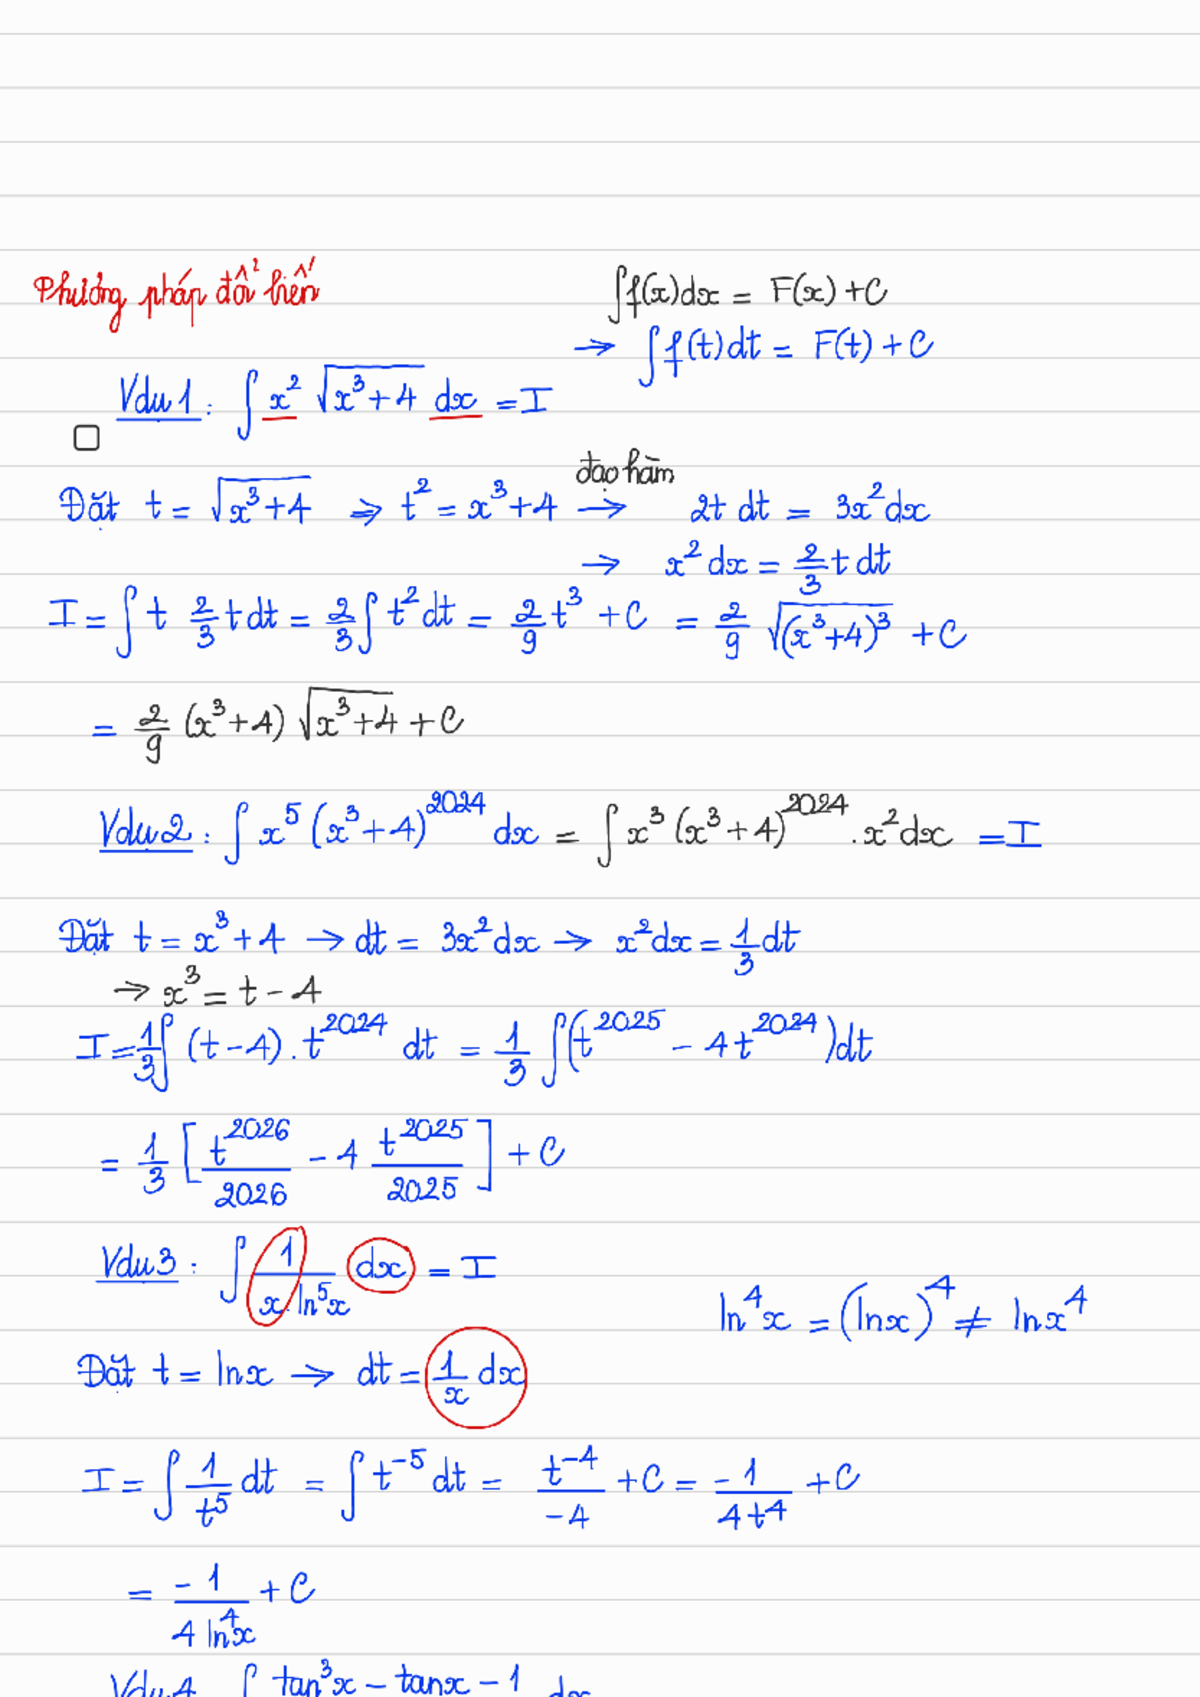 Phương pháp đổi biến
∫f(x)dx = F(x) + C
→ ∫f(t)dt = F(t) + C
Vdu1: ∫ x² √(x³+4) dx = I
Đặt t = √(x³+4) ⇒ t² = x³+4 đạo hàm → 2t dt = 3x²dx
→ x²dx = 2/3 t dt
I = ∫ t 2/3 t dt = 2/3 ∫ t² dt = 2/9 t³ + C = 2/9 √((x³+4)³) + C
= 2/9 (x³+4) √(x³+4) + C
Vdu2: ∫ x⁵ (x³+4)²⁰²⁴ dx = ∫ x³ (x³+4)²⁰²⁴ . x²dx = I
Đặt t = x³+4 → dt = 3x²dx → x²dx = 1/3 dt
→ x³ = t - 4
I = 1/3 ∫ (t-4) . t²⁰²⁴ dt = 1/3 ∫ (t²⁰²⁵ - 4t²⁰²⁴) dt
= 1/3 [t²⁰²⁶/2026 - 4 t²⁰²⁵/2025] + C
Vdu3: ∫ 1/(x.ln⁵x) dx = I
ln⁴x = (lnx)⁴ ≠ lnx⁴
Đặt t = lnx → dt = 1/x dx
I = ∫ 1/t⁵ dt = ∫ t⁻⁵ dt = t⁻⁴/-4 + C = -1/4t⁴ + C
= -1/(4 ln⁴x) + C
Vdu4 ∫ tan³x - tanx - 1 dx